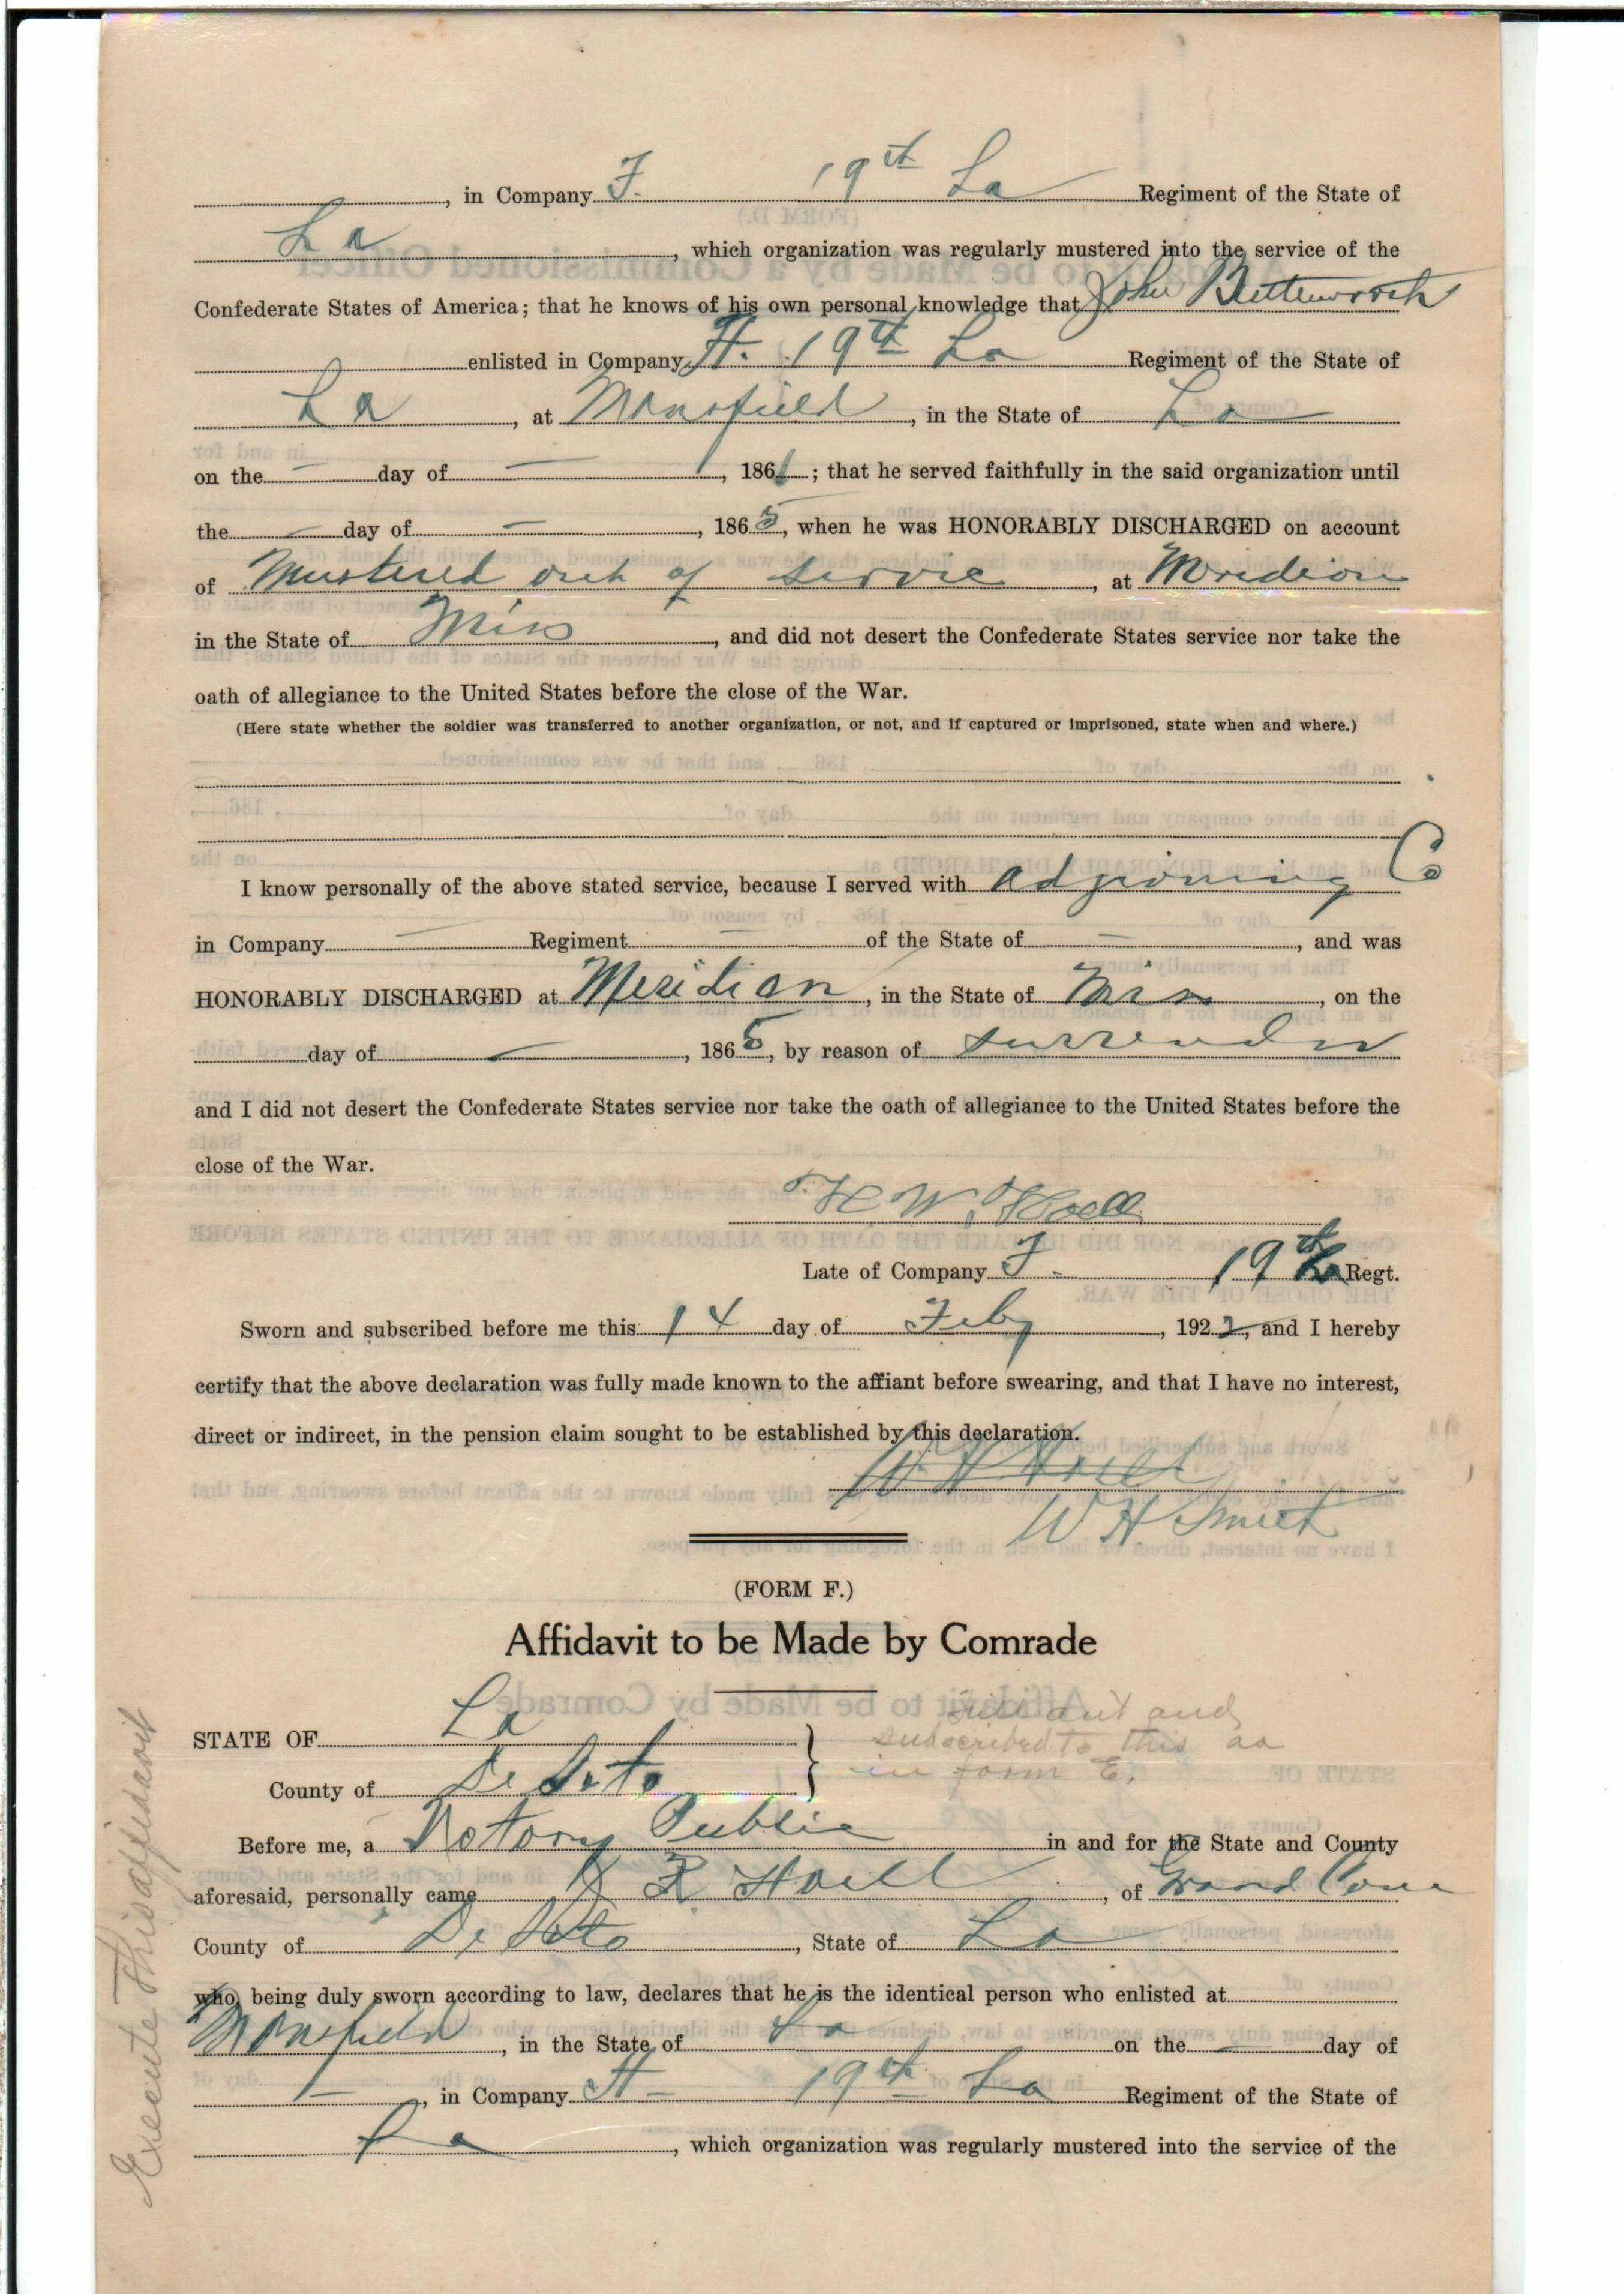 , in Company F. 19th La Regiment of the State of
La, which organization was regularly mustered into the service of the
Confederate States of America; that he knows of his own personal knowledge that John Butterworth
enlisted in Company H. 19th La Regiment of the State of
La, at Mansfield, in the State of La
on the — day of —, 1861; that he served faithfully in the said organization until
the — day of —, 1865, when he was HONORABLY DISCHARGED on account
of Mustered out of service, at Meridian
in the State of Miss, and did not desert the Confederate States service nor take the
oath of allegiance to the United States before the close of the War.
(Here state whether the soldier was transferred to another organization, or not, and if captured or imprisoned, state when and where.)
I know personally of the above stated service, because I served with adjoining Co
in Company — Regiment — of the State of —, and was
HONORABLY DISCHARGED at Meridian, in the State of Miss, on the
day of —, 1865, by reason of surrender
and I did not desert the Confederate States service nor take the oath of allegiance to the United States before the
close of the War.
H W
Late of Company F 19th La Regt.
Sworn and subscribed before me this 14 day of Feby, 1922, and I hereby
certify that the above declaration was fully made known to the affiant before swearing, and that I have no interest,
direct or indirect, in the pension claim sought to be established by this declaration.
W H
W H Smith
(FORM F.)
Affidavit to be Made by Comrade
STATE OF La
County of De Soto
Fill out and
subscribed to this as
in form E.
Before me, a Notary Public in and for the State and County
aforesaid, personally came, of Grand Cane
County of De Soto, State of La
who, being duly sworn according to law, declares that he is the identical person who enlisted at
Mansfield, in the State of La on the — day of
—, in Company H — 19th La Regiment of the State of
La, which organization was regularly mustered into the service of the
Execute This affidavit